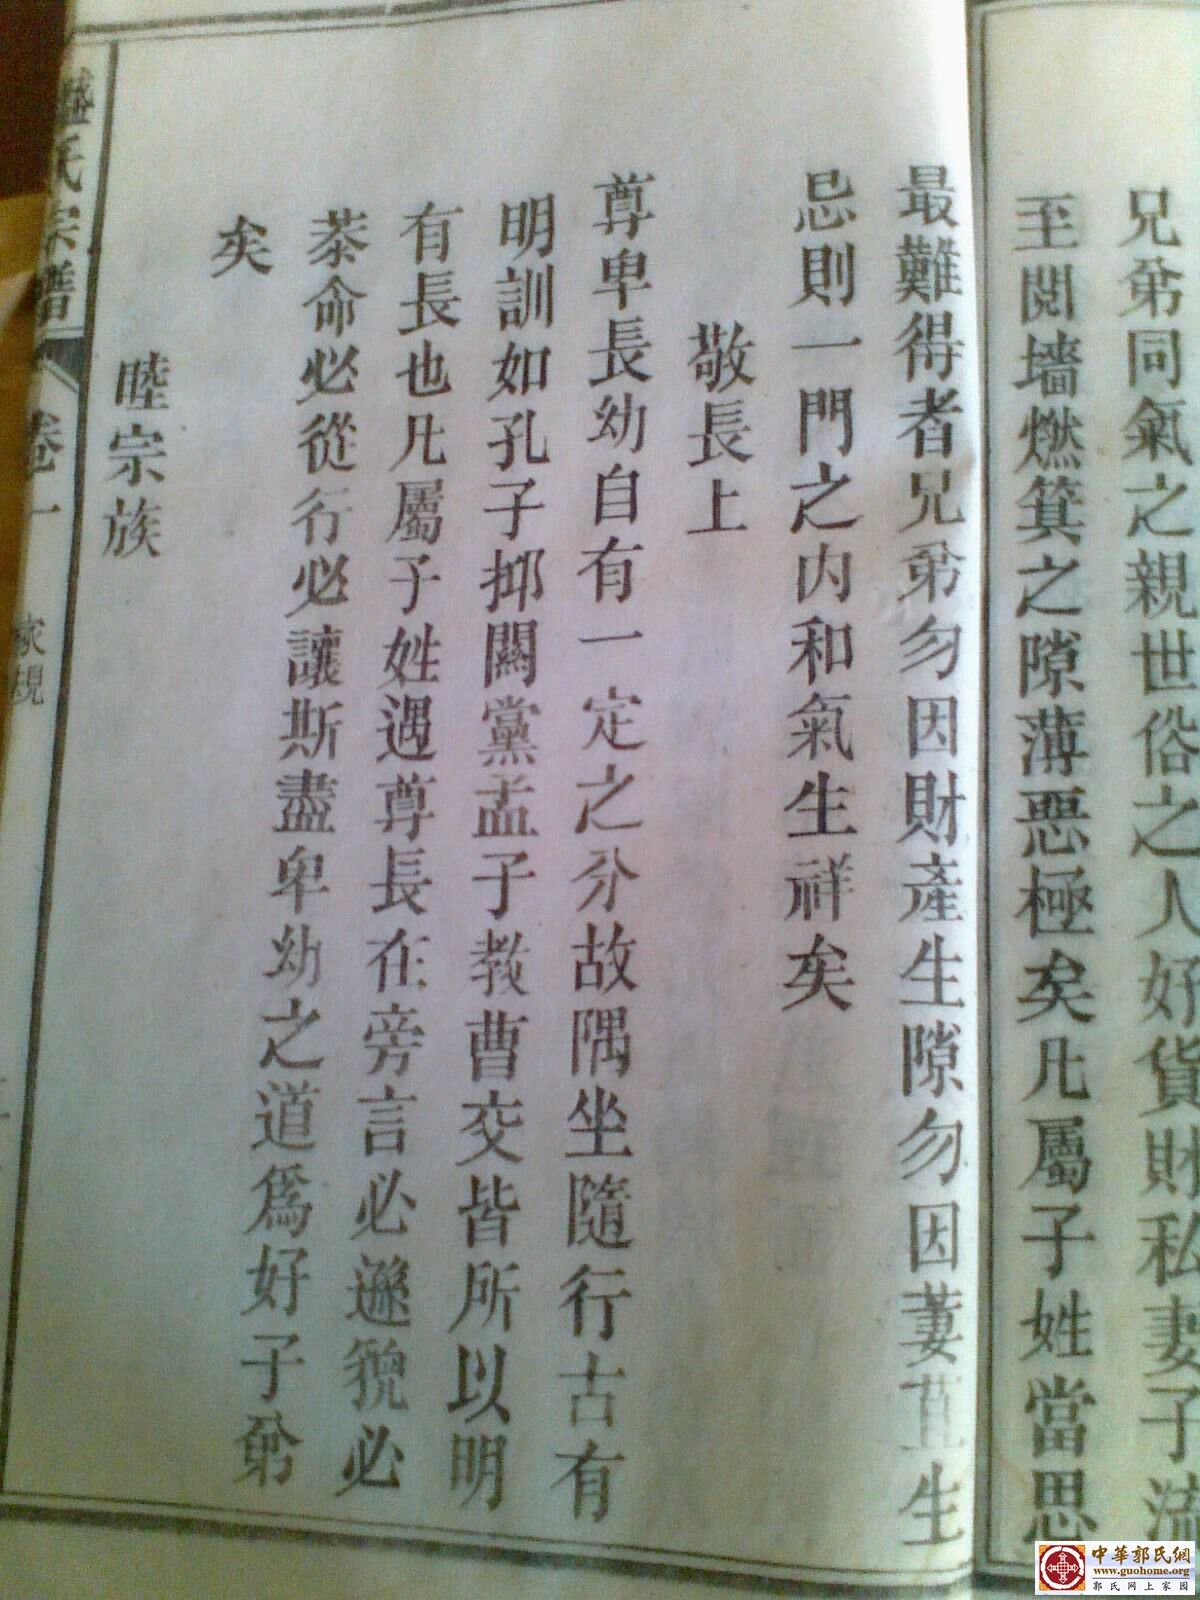 兄弟同氣之親世俗之人好貨財私妻子流
至閱墻燃箕之隙薄惡極矣凡屬子姓當思
最難得者兄弟勿因財產生隙勿因萋苴生
忌則一門之内和氣生祥矣
敬長上
尊卑長幼自有一定之分故隅坐隨行古有
明訓如孔子抑闕黨孟子教曹交皆所以明
有長也凡屬子姓遇尊長在旁言必遜貌必
恭命必從行必讓斯盡卑幼之道為好子弟
矣
睦宗族
氏宗譜
卷一
家規
中華郭氏網
www.guohome.org
郭氏網上家園